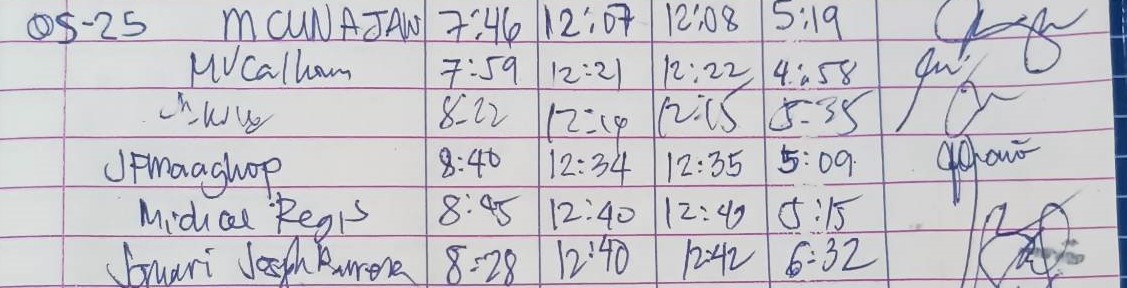 05-25 MCUNAJAW 7:46 12:07 12:08 5:19
MVCalham 7:59 12:21 12:22 4:58
8:22 12:14 12:15 5:35
JFMaaghop 8:40 12:34 12:35 5:09
Michael Regis 8:45 12:40 12:49 5:15
Jomari Joseph 8:28 12:40 12:42 6:32